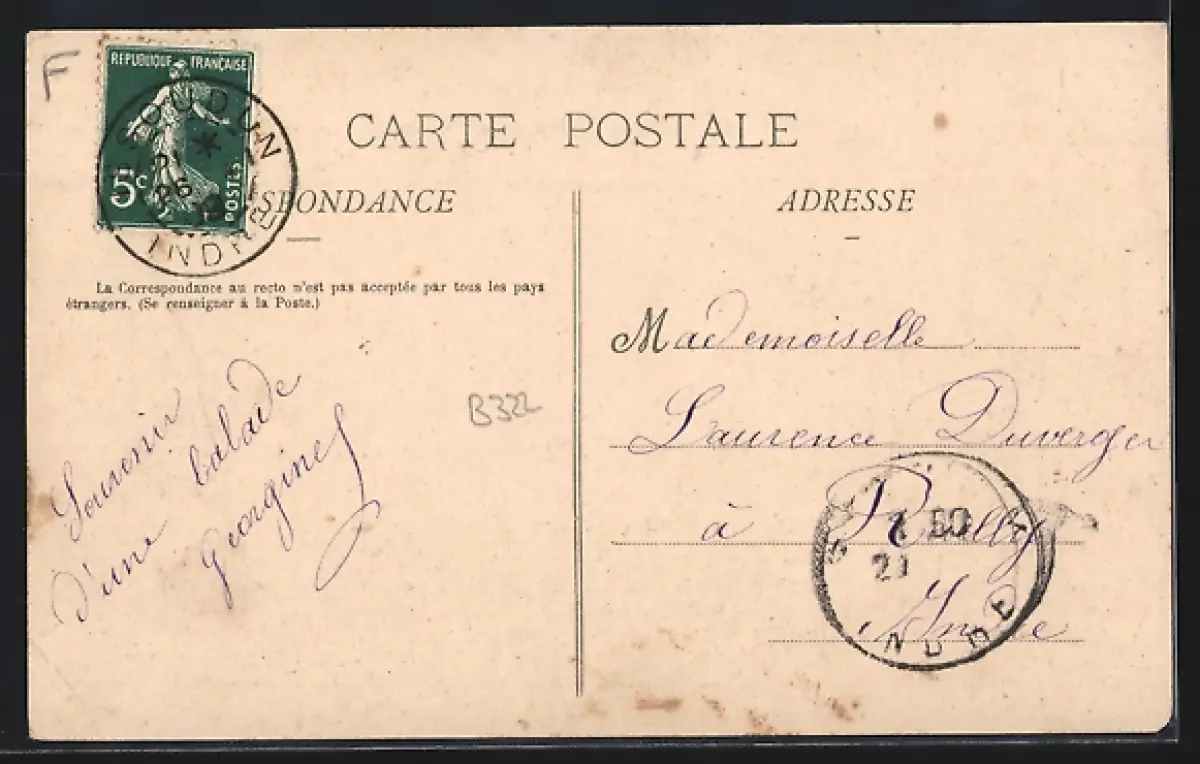 F
REPUBLIQUE FRANÇAISE
5c
POSTES
INDRE
CARTE POSTALE
SPONDANCE
ADRESSE
La Correspondance au recto n'est pas acceptée par tous les pays
étrangers. (Se renseigner à la Poste.)
Souvenir
d'une balade
Georgine
B322
Mademoiselle
Laurence Duverger
à Reuilly
Indre
INDRE